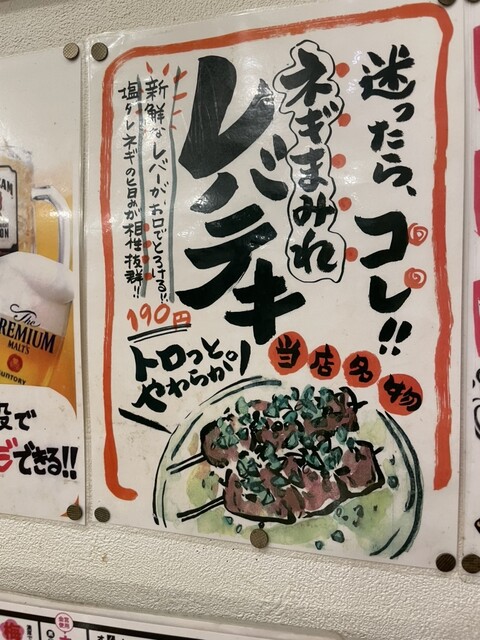 迷ったら、コレ!!
ネギまみれ
レバテキ
新鮮なレバーがお口でとろける!!
塩タレネギの旨みが相性抜群!!
190円
トロっと
やわらか。
当店名物
The
PREMIUM
MALT'S
SUNTORY
できる!!
梅